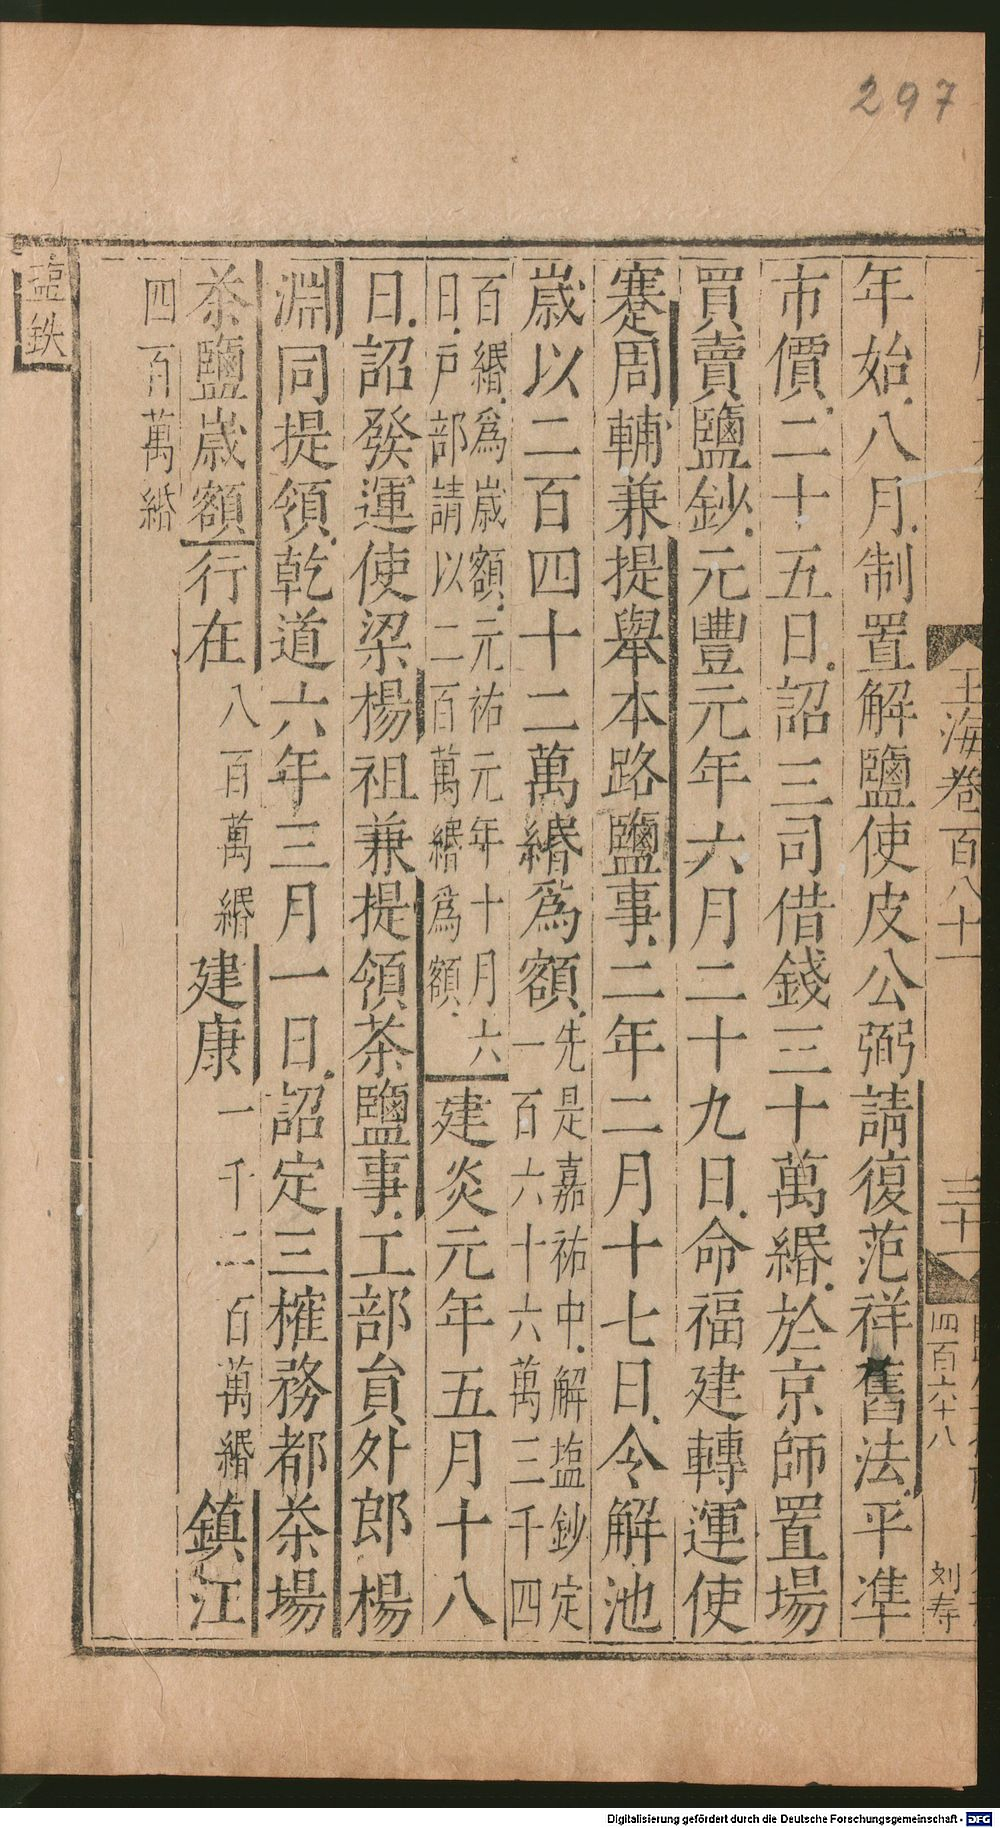 297
玉海卷百八十一
三十一
四百六十八
刘寿
年始八月制置解鹽使皮公弼請復范祥舊法平凖
市價二十五日詔三司借錢三十萬緡於京師置場
買賣鹽鈔元豐元年六月二十九日命福建轉運使
蹇周輔兼提舉本路鹽事二年二月十七日令解池
歲以二百四十二萬緡爲額先是嘉祐中解塩鈔定
一百六十六萬三千四
百緡爲歲額元祐元年十月六
日戶部請以二百萬緡爲額
建炎元年五月十八
日詔發運使梁楊祖兼提領茶鹽事工部員外郎楊
淵同提領乾道六年三月一日詔定三榷務都茶場
茶鹽歲額行在八百萬緡建康一千二百萬緡鎮江
四百萬緡
塩鉄
Digitalisierung gefördert durch die Deutsche Forschungsgemeinschaft - DFG